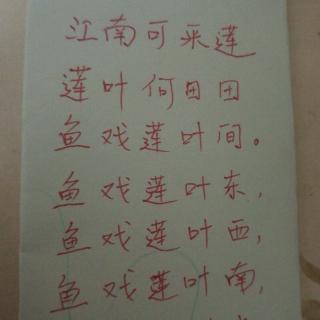 江南可采莲
莲叶何田田
鱼戏莲叶间。
鱼戏莲叶东,
鱼戏莲叶西,
鱼戏莲叶南,